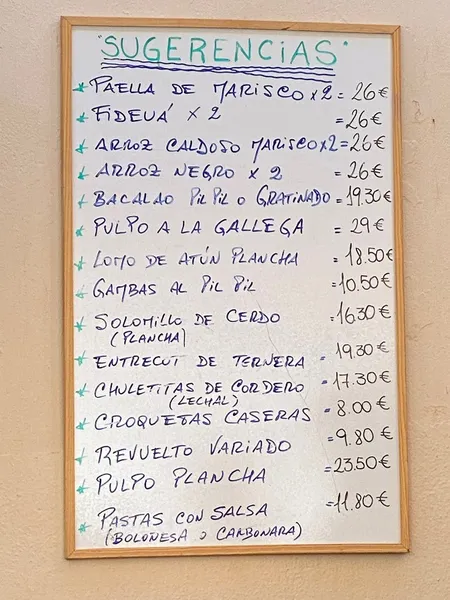 SUGERENCIAS
* PAELLA DE MARISCO x 2 = 26€
* FIDEUÁ x 2 = 26€
* ARROZ CALDOSO MARISCO x 2 = 26€
* ARROZ NEGRO x 2 = 26€
* BACALAO PIL PIL O GRATINADO = 19.30€
* PULPO A LA GALLEGA = 29€
* LOMO DE ATÚN PLANCHA = 18.50€
* GAMBAS AL PIL PIL = 10.50€
* SOLOMILLO DE CERDO = 16.30€
(PLANCHA)
* ENTRECUT DE TERNERA = 19.30€
* CHULETITAS DE CORDERO = 17.30€
(LECHAL)
* CROQUETAS CASERAS = 8.00€
* REVUELTO VARIADO = 9.80€
* PULPO PLANCHA = 23.50€
* PASTAS CON SALSA = 11.80€
(BOLOÑESA O CARBONARA)